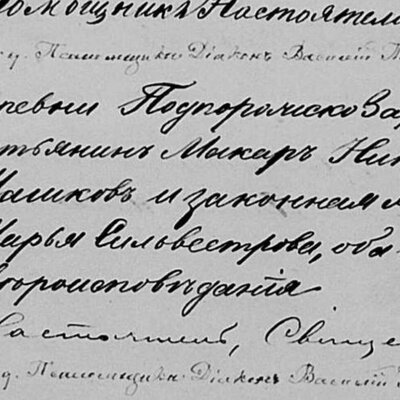 омощникъ Настоятел
д. Псаломщика Діаконъ Василій
ревни Подпорожско За
стьянинъ Макаръ Ник
Машковъ и законная
Марья Сильвестрова, оба
вероисповѣданія
Настоятель, Свяще
д. Псаломщика Діаконъ Василій